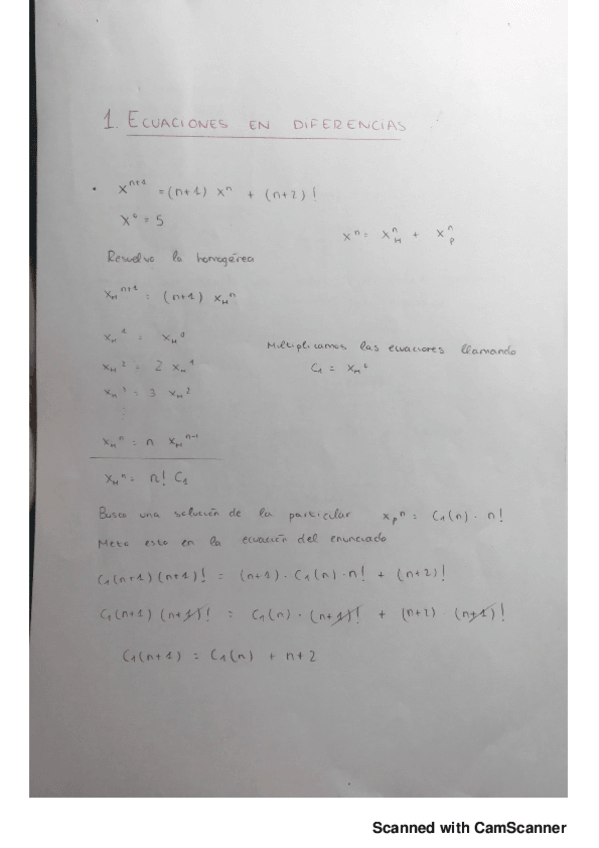 1. ECUACIONES EN DIFERENCIAS
• xⁿ⁺¹ = (n+1) xⁿ + (n+2)!
x⁰ = 5
xⁿ = x_Hⁿ + x_Pⁿ
Resuelvo la homogénea
x_Hⁿ⁺¹ = (n+1) x_Hⁿ
x_H¹ = x_H⁰
Multiplicamos las ecuaciones llamando
x_H² = 2 x_H¹
C₁ = x_H⁰
x_H³ = 3 x_H²
⋮
x_Hⁿ = n x_Hⁿ⁻¹
x_Hⁿ = n! C₁
Busco una solución de la particular x_Pⁿ = C₁(n) · n!
Meto esto en la ecuación del enunciado
C₁(n+1)(n+1)! = (n+1) · C₁(n) · n! + (n+2)!
C₁(n+1) (n+1)! = C₁(n) · (n+1)! + (n+2) · (n+1)!
C₁(n+1) = C₁(n) + n+2
Scanned with CamScanner